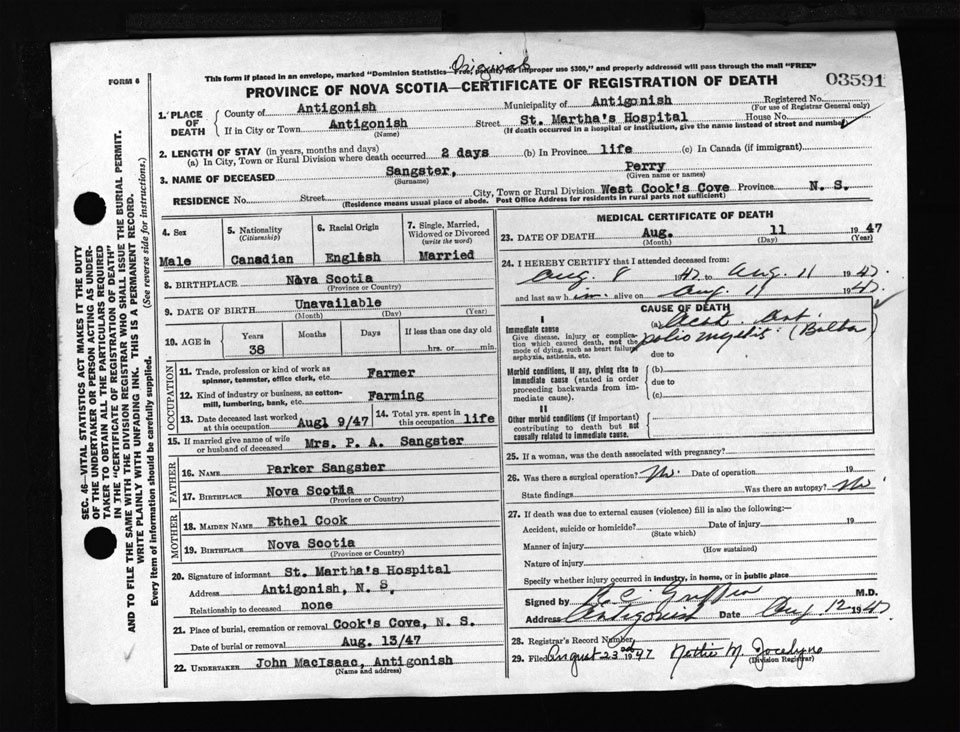 Original
FORM 6
This form if placed in an envelope, marked "Dominion Statistics—Free, penalty for improper use $300," and properly addressed will pass through the mail "FREE"
PROVINCE OF NOVA SCOTIA—CERTIFICATE OF REGISTRATION OF DEATH
03591
1. PLACE OF DEATH County of Antigonish Municipality of Antigonish Registered No.
(For use of Registrar General only)
If in City or Town Antigonish Street St. Martha's Hospital House No.
(Name) (If death occurred in a hospital or institution, give the name instead of street and number)
2. LENGTH OF STAY (in years, months and days)
(a) In City, Town or Rural Division where death occurred 2 days (b) In Province life (c) In Canada (if immigrant)
3. NAME OF DECEASED Sangster, Perry
(Surname) (Given name or names)
RESIDENCE No. Street City, Town or Rural Division West Cook's Cove Province N. S.
(Residence means usual place of abode. Post Office Address for residents in rural parts not sufficient)
4. Sex 5. Nationality (Citizenship) 6. Racial Origin 7. Single, Married, Widowed or Divorced (write the word)
Male Canadian English Married
8. BIRTHPLACE Nova Scotia
(Province or Country)
9. DATE OF BIRTH Unavailable
(Month) (Day) (Year)
10. AGE in Years Months Days If less than one day old
38 hrs. or min.
OCCUPATION
11. Trade, profession or kind of work as spinner, teamster, office clerk, etc. Farmer
12. Kind of industry or business, as cotton-mill, lumbering, bank, etc. Farming
13. Date deceased last worked at this occupation Augl 9/47 14. Total yrs. spent in this occupation life
15. If married give name of wife or husband of deceased Mrs. P. A. Sangster
FATHER
16. NAME Parker Sangster
17. BIRTHPLACE Nova Scotia
(Province or Country)
MOTHER
18. MAIDEN NAME Ethel Cook
19. BIRTHPLACE Nova Scotia
(Province or Country)
20. Signature of informant St. Martha's Hospital
Address Antigonish, N. S.
Relationship to deceased none
21. Place of burial, cremation or removal Cook's Cove, N. S.
Date of burial or removal Aug. 13/47
22. UNDERTAKER John MacIsaac, Antigonish
(Name and address)
MEDICAL CERTIFICATE OF DEATH
23. DATE OF DEATH Aug. 11 1947
(Month) (Day) (Year)
24. I HEREBY CERTIFY that I attended deceased from:
Aug. 8 1947 to Aug. 11 1947.
and last saw him alive on Aug. 11 1947.
CAUSE OF DEATH
I
Immediate cause
Give disease, injury or complication which caused death, not the mode of dying, such as heart failure, asphyxia, asthenia, etc.
(a) Acute Ant.
poliomyelitis (Bulba
due to
Morbid conditions, if any, giving rise to immediate cause (stated in order proceeding backwards from immediate cause).
(b)
due to
(c)
II
Other morbid conditions (if important) contributing to death but not causally related to immediate cause.
25. If a woman, was the death associated with pregnancy?
26. Was there a surgical operation? No. Date of operation 19
State findings Was there an autopsy? No.
27. If death was due to external causes (violence) fill in also the following:—
Accident, suicide or homicide? Date of injury 19
(State which)
Manner of injury
(How sustained)
Nature of injury
Specify whether injury occurred in industry, in home, or in public place
Signed by Griffin M.D.
Address Antigonish Date Aug 12 1947
28. Registrar's Record Number
29. Filed August 23rd 1947 Nottie M. Jocelyne
(Division Registrar)
SEC. 46—VITAL STATISTICS ACT MAKES IT THE DUTY
OF THE UNDERTAKER OR PERSON ACTING AS UNDER-
TAKER TO OBTAIN ALL THE PARTICULARS REQUIRED
IN THE "CERTIFICATE OF REGISTRATION OF DEATH"
AND TO FILE THE SAME WITH THE DIVISION REGISTRAR WHO SHALL ISSUE THE BURIAL PERMIT.
WRITE PLAINLY WITH UNFADING INK. THIS IS A PERMANENT RECORD.
Every item of information should be carefully supplied. (See reverse side for instructions.)